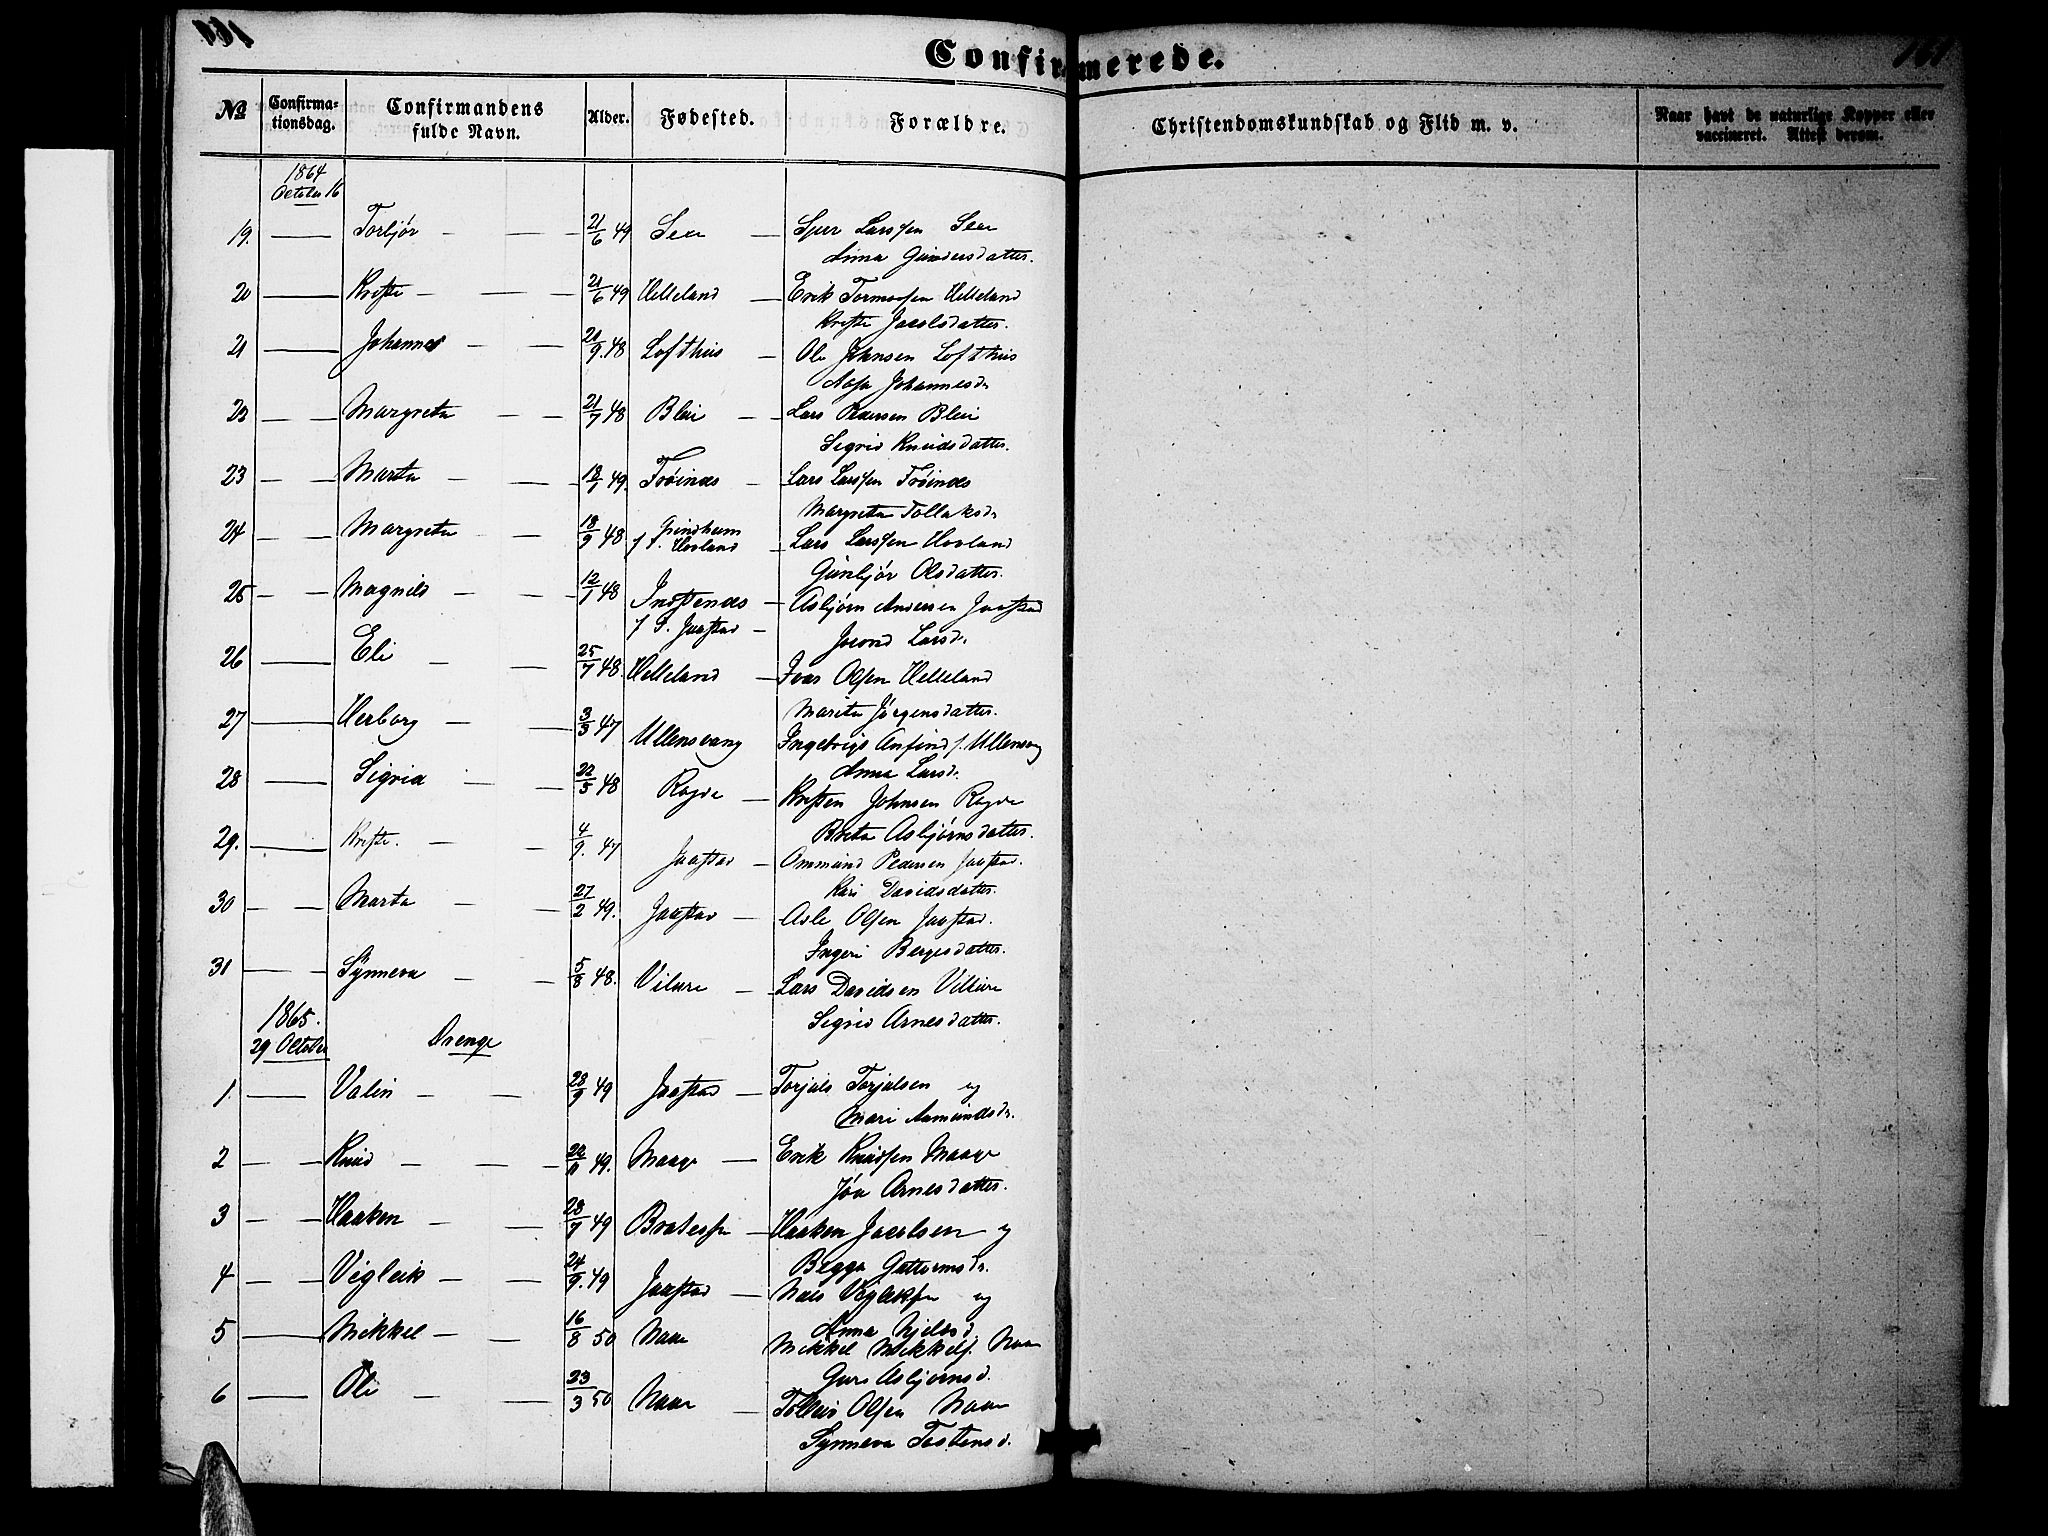 161
Confirmerede.
161
No Confirmationsdag. Confirmandens fulde Navn. Alder. Fødested. Forældre. Christendomskundskab og Flid m. v. Naar havt de naturlige Kopper eller vaccineret. Attest derom.
1864
October 16
19. Torbjør 21/6 49 Sexe Sjur Larssen Sexe
Anna Gundersdatter.
20 Kriste 21/6 49 Helleland Erik Tormodsen Helleland
Kriste Jacobsdatter.
21 Johannes 20/9. 48 Lofthus Ole Johnsen Lofthus
Aasa Johannesdr
22 Margreta 21/7 48 Bleie Lars Pedersen Bleie
Sigrid Knudsdatter.
23 Marta 18/1 49. Frøinæs Lars Larssen Frøinæs
Margreta Tollaksdr
24 Margreta 18/9 48 Grindheim
f S. Hovland Lars Larssen Hovland
Gunbjør Olsdatter.
25 Magnild 12/1 48 Indstenæs Asbjørn Andersen Jaastad
f S. Jaastad Jorond Larsdr
26 Eli 25/7 48. Helleland Ivar Olsen Helleland
Marita Jørgensdatter.
27 Herborg 3/3 47 Ullensvang Ingebrigt Anfinds. Ullensvg
Anna Larsdr.
28 Sigrid 22/5 48 Ragde Kristen Johnsen Ragde
Brita Asbjørnsdatter.
29. Kriste. 4/9. 47 Jaastad Ommund Pedersen Jaastad.
Kari Davidsdatter.
30 Marta 27/2 49. Jaastad Asle Olsen Jaastad.
Ingeri Bergesdatter.
31 Synneva 5/8 48. Vilure Lars Davidsen Vilure
Sigrid Arnesdatter.
1865.
29 October Drenge
1. Valin 28/9 49 Jaastad Torjuls Torjulsen og
Mari Aamundsdr.
2 Knud 49. Maage Erik Knudsen Maage
Arnesdatter.
3 Haaken 28/7 49 Haaken Jacobsen og
Begga Guttormsdr.
4 Vigleik 24/9. 49 Jaastad Nils Vigleiksen og
Anna Njelsd.
5 Mikkel 16/8 50 Naae Mikkel Mikkels. Naae
Guro Asbjørnsd.
6 Ole 23/3 50 Naae Olsen Naae
Synneva Tostensd.